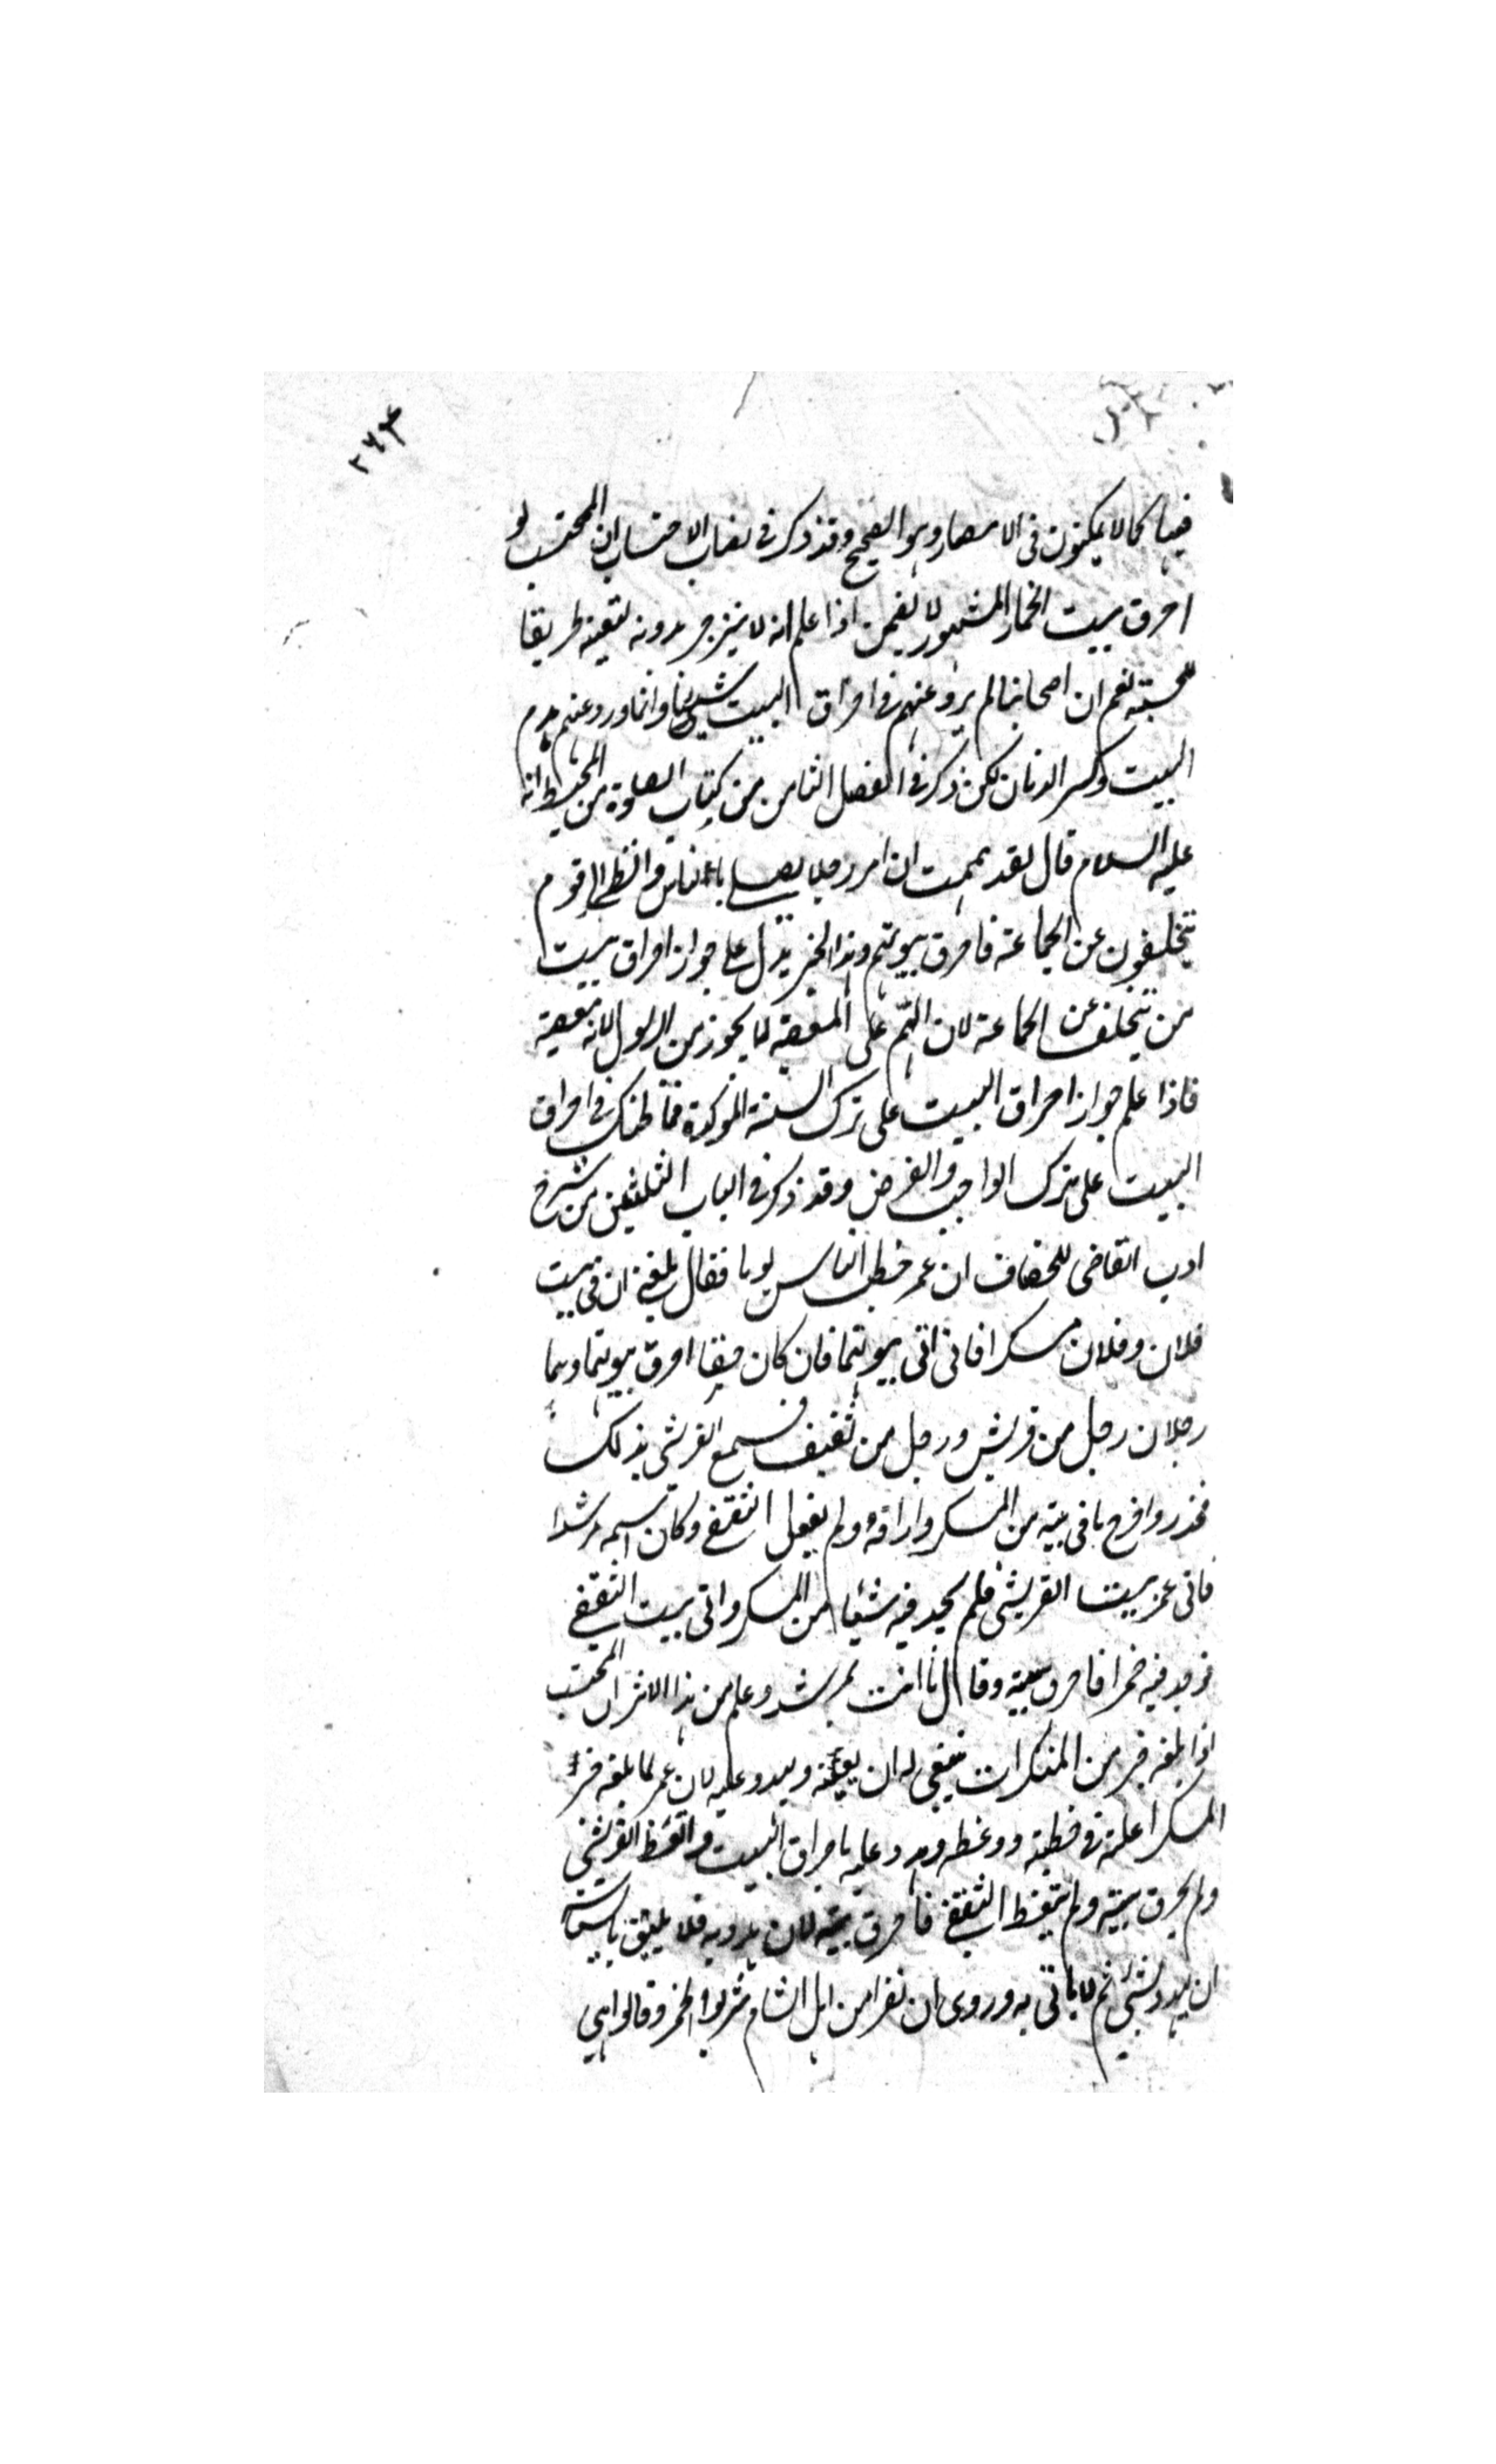 ٢٦٣
فيها كما لا يمكنون فى الامصار وهو الصحيح وقد ذكر فى نصاب الاحتساب ان المحتسب لو
احرق بيت الخمار المشهور لا يضمن اذا علم انه لا ينزجر بدونه لتعينه طريقا
للحسبة نعم ان اصحابنا لم يرو عنهم فى احراق البيت شيئا وانما ورد عنهم هدم
البيت وكسر الدنان لكن ذكر فى الفصل الثامن من كتاب الصلوة من المحيط انه
عليه السلام قال لقد هممت ان امر رجلا يصلى بالناس وانظر الى قوم
يتخلفون عن الجماعة فاحرق بيوتهم وهذا الخبر يدل على جواز احراق بيت
من يتخلف عن الجماعة لان الهم على المعصية لا يجوز من الرسول لانه معصية
فاذا علم جواز احراق البيت على ترك السنة المؤكدة فما ظنك فى احراق
البيت على ترك الواجب والفرض وقد ذكر فى الباب الثلثين من شرح
ادب القاضى للخصاف ان عمر خطب الناس يوما فقال بلغنى ان فى بيت
فلان وفلان مسكرا فانى اتى بيوتهما فان كان حقا احرق بيوتهما وهما
رجلان رجل من قريش ورجل من ثقيف فسمع القرشى بذلك
فحذر واخرج ما فى بيته من المسكر واراقه ولم يفعل الثقفى وكان اسمه مرشدا
فاتى عمر بيت القريشى فلم يجد فيه شيئا من المسكر واتى بيت الثقفى
فوجد فيه خمرا فاحرق بيته وقال ما انت بمرشد وعلم من هذا الاثر ان المحتسب
اذا بلغه خبر من المنكرات ينبغى له ان يعظه ويهدد عليه لان عمر لما بلغه خبر
المسكر اعلمه فى خطبته ووعظه وهدد عليه باحراق البيت واتعظ القرشى
ولم يحرق بيته ولم يتعظ الثقفى فاحرق بيته لان هدد به فلا يليق بالسياسة
ان يهدد بشئ ثم لا ياتى به وروى ان نفرا من اهل الشام شربوا الخمر وقالوا هى